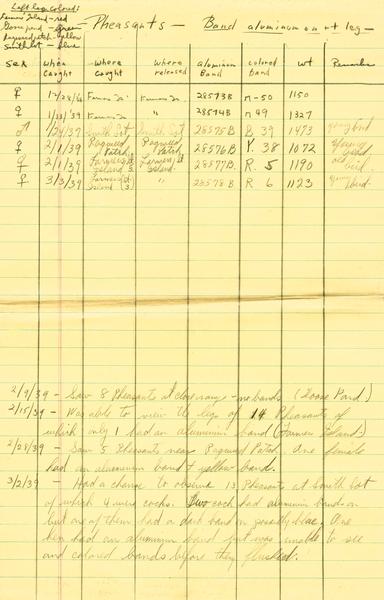 Left leg colored:
Farmers Island - red
Goose pond - green
Ragweed patch - yellow
Smith lot - blue
Pheasants - Band aluminum on rt leg -
Sex when caught where caught where released aluminum Band colored band wt Remarks
♀ 12/28/38 Farmers Is. Farmers Is. 28573B r-50 1150
♀ 1/23/39 " " 28574B r 49 1327
♂ 1/24/39 Smith Lot Smith Lot 28575B B 39 1473 young bird
♀ 2/1/39 Ragweed Patch Ragweed Patch 28576B Y. 38 1072 young bird
♀ 2/1/39 Farmers Island Farmers Island 28577B R. 5 1190 old bird
♀ 3/3/39 Farmers Island " 28578B R 6 1123 young bird
2/9/39 - Saw 8 Pheasants at close range - no bands (Goose Pond)
2/15/39 - Was able to view the legs of 14 Pheasants of
which only 1 had an aluminum band (Farmers Island)
2/28/39 - Saw 5 Pheasants near Ragweed Patch. One female
had an aluminum band & yellow band.
3/2/39 - Had a chance to observe 13 Pheasants at Smith Lot
of which 4 were cocks. Two cock had aluminum bands on
but one of them had a dark band on possibly blue. One
hen had an aluminum band but was unable to see
and colored bands before they flushed.